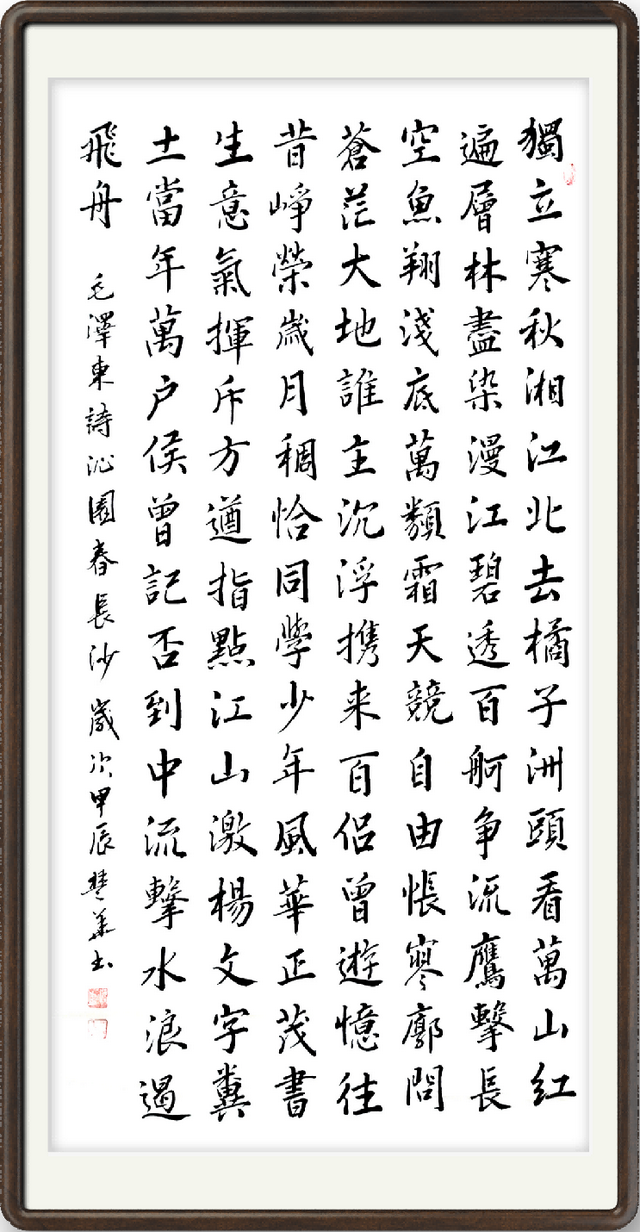 獨立寒秋湘江北去橘子洲頭看萬山紅
遍層林盡染漫江碧透百舸争流鷹擊長
空魚翔淺底萬類霜天競自由悵寥廓問
蒼茫大地誰主沉浮携来百侣曾遊憶往
昔崢榮歲月稠恰同學少年風華正茂書
生意氣揮斥方遒指點江山激楊文字糞
土當年萬户侯曾記否到中流擊水浪遏
飛舟 毛澤東詩沁園春長沙 歲次甲辰楚華书